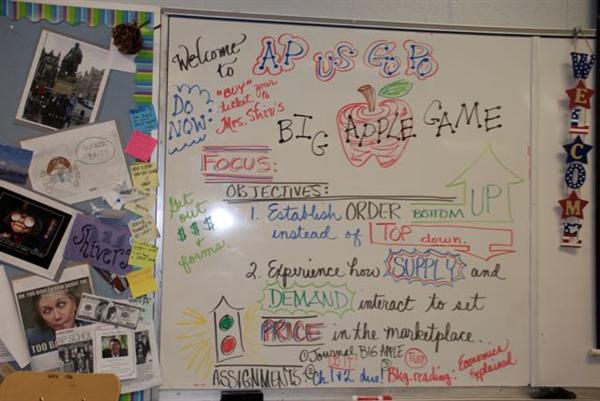 Welcome to AP US GOPO
DO NOW:
"BUY" your ticket to Mrs. Shiv's
BIG APPLE GAME
FOCUS:
Get out $ $ $ + forms.
OBJECTIVES:
1. Establish ORDER BOTTOM UP
instead of TOP down.
2. Experience how SUPPLY and
DEMAND interact to set
PRICE in the marketplace..
① Journal BIG APPLE
ASSIGNMENTS: Ch. 1 & 2 due! Bkg. reading. Economics Explained
DO IT!
TUIT
WELCOME
Shivers
TOO BA
AP SCHOL